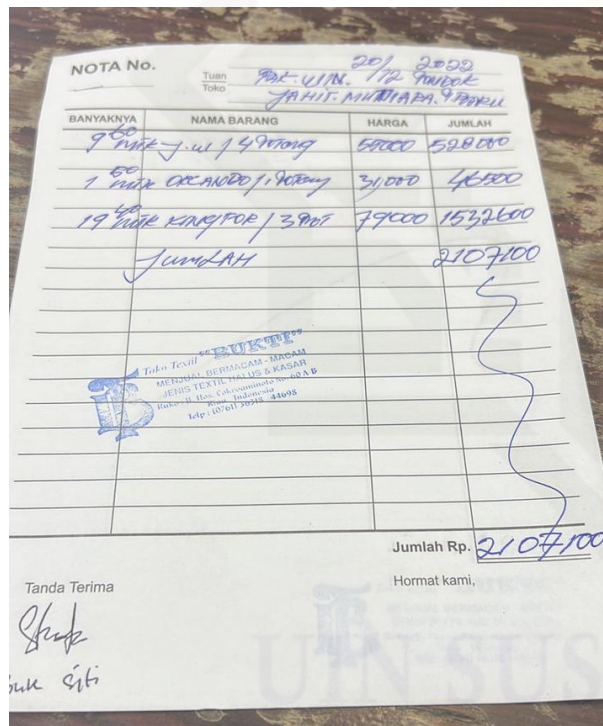 NOTA No.
20/12 2022
Tuan
Toko
PAK. UIN. PONDOK
JAHIT. MUTIARA.
BANYAKNYA NAMA BARANG HARGA JUMLAH
9 60 mtk J.W / 4 potong 55000 528000
1 50 mtk ORLANDO / 1 potong 31,000 46500
19 40 mtk KINGFOR / 3 POT 79000 1532600
JUMLAH 2107100
Toko Textil "BUKTI"
MENJUAL BERMACAM - MACAM
JENIS TEXTIL HALUS & KASAR
Ruko : Jl. Hos. Cokroaminoto No. 60 A B
Riau - Indonesia
Telp : (0761) 44698
Jumlah Rp. 2107100
Tanda Terima Hormat kami,
buk Siti
UIN SUS